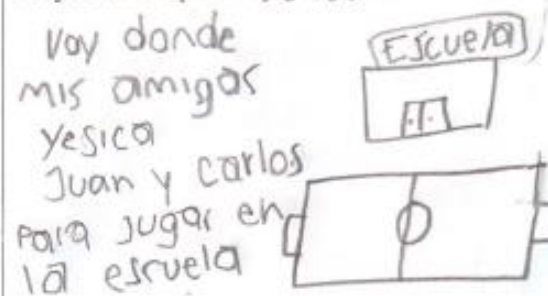 voy donde
mis amigos
yesica
Juan y carlos
para jugar en
la escuela
Escuela